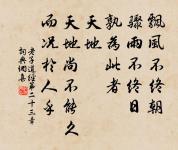 飄風不終朝
驟雨不終日
孰為此者
天地
天地尚不能久
而況於人乎
老子道經第二十三章
詞典網集